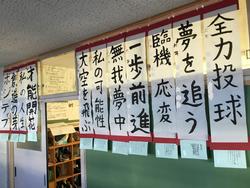 全力投球
夢を追う
臨機応変
一歩前進
無我夢中
私の可能性
大空を飛ぶ
才能開花
私の人生